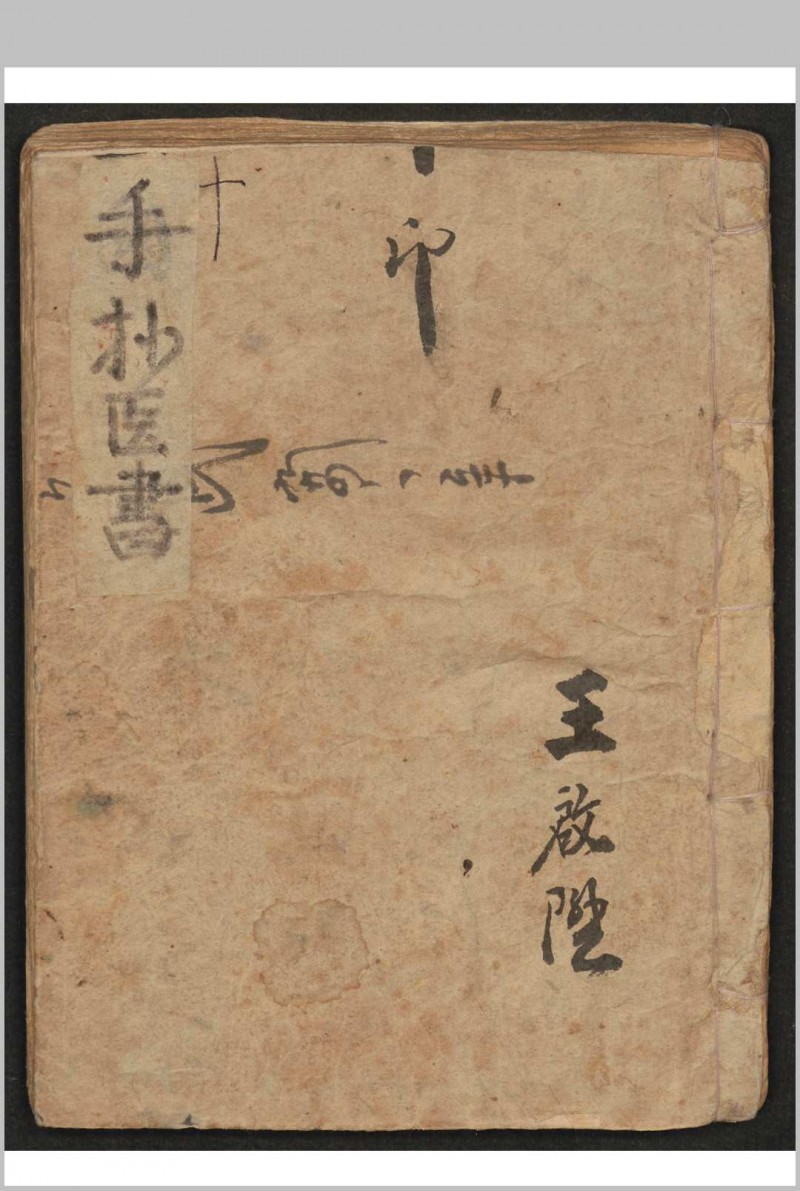 王啟陞
印
十
手抄医書